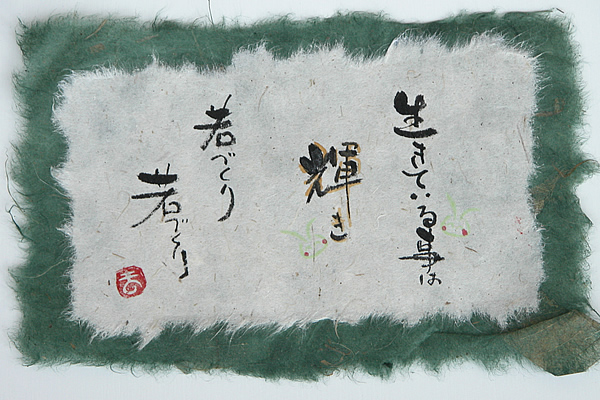 生きている事は
輝き
若づくり
若づくり